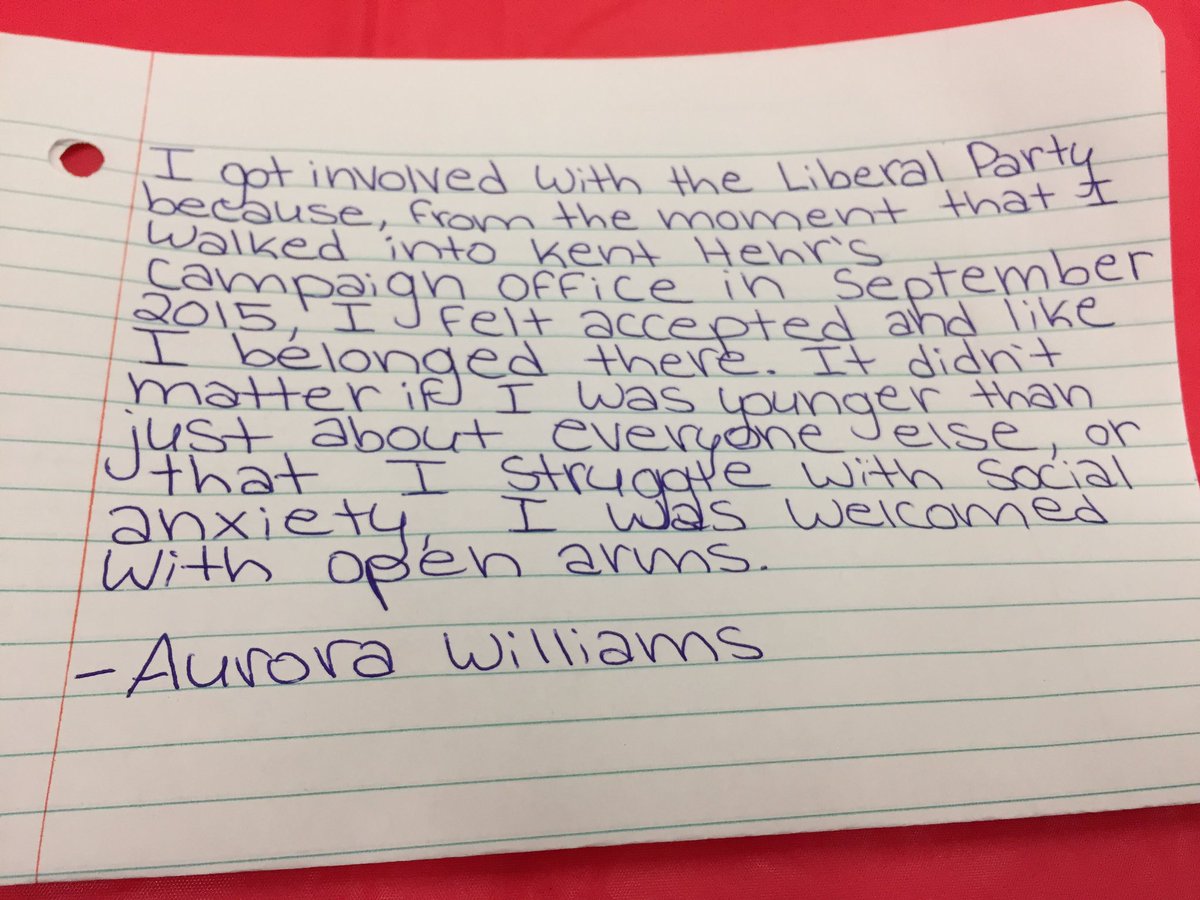 I got involved with the Liberal Party
because, from the moment that I
walked into Kent Hehr's
campaign office in September
2015, I felt accepted and like
I belonged there. It didn't
matter if I was younger than
just about everyone else, or
that I struggle with social
anxiety, I was welcomed
with open arms.
- Aurora Williams